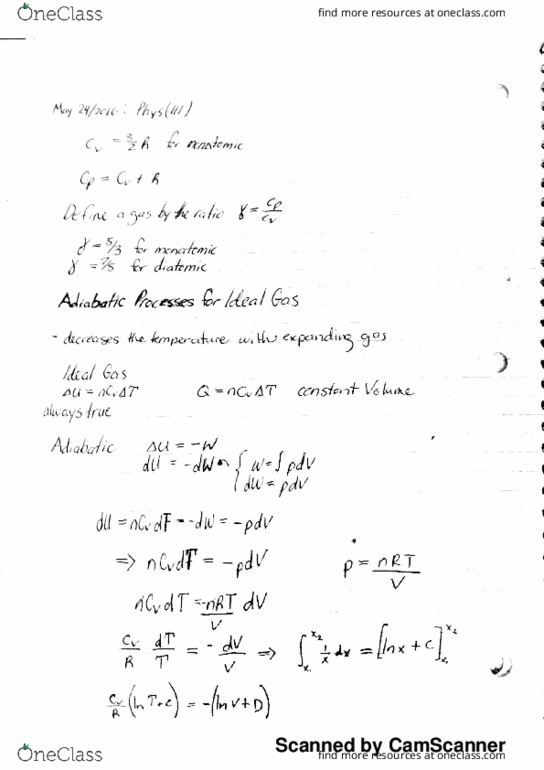 OneClass
find more resources at oneclass.com
May 24/2016: Phys(111)
Cv = 3/2 R for monatomic
Cp = Cv + R
Define a gas by the ratio γ = Cp/Cv
γ = 5/3 for monatomic
γ = 7/5 for diatomic
Adiabatic Processes for Ideal Gas
- decreases the temperature with expanding gas
Ideal Gas
ΔU = nCvΔT Q = nCvΔT constant Volume
always true
Adiabatic ΔU = -W
dU = -dW { W = ∫ pdV
dW = pdV
dU = nCvdT = -dW = -pdV
=> nCvdT = -pdV p = nRT/V
nCvdT = -nRT/V dV
Cv/R dT/T = - dV/V => ∫x₁^x₂ 1/x dx = [ln x + C]x₁^x₂
Cv/R (ln T + C) = -(ln V + D)
Scanned by CamScanner
OneClass
find more resources at oneclass.com